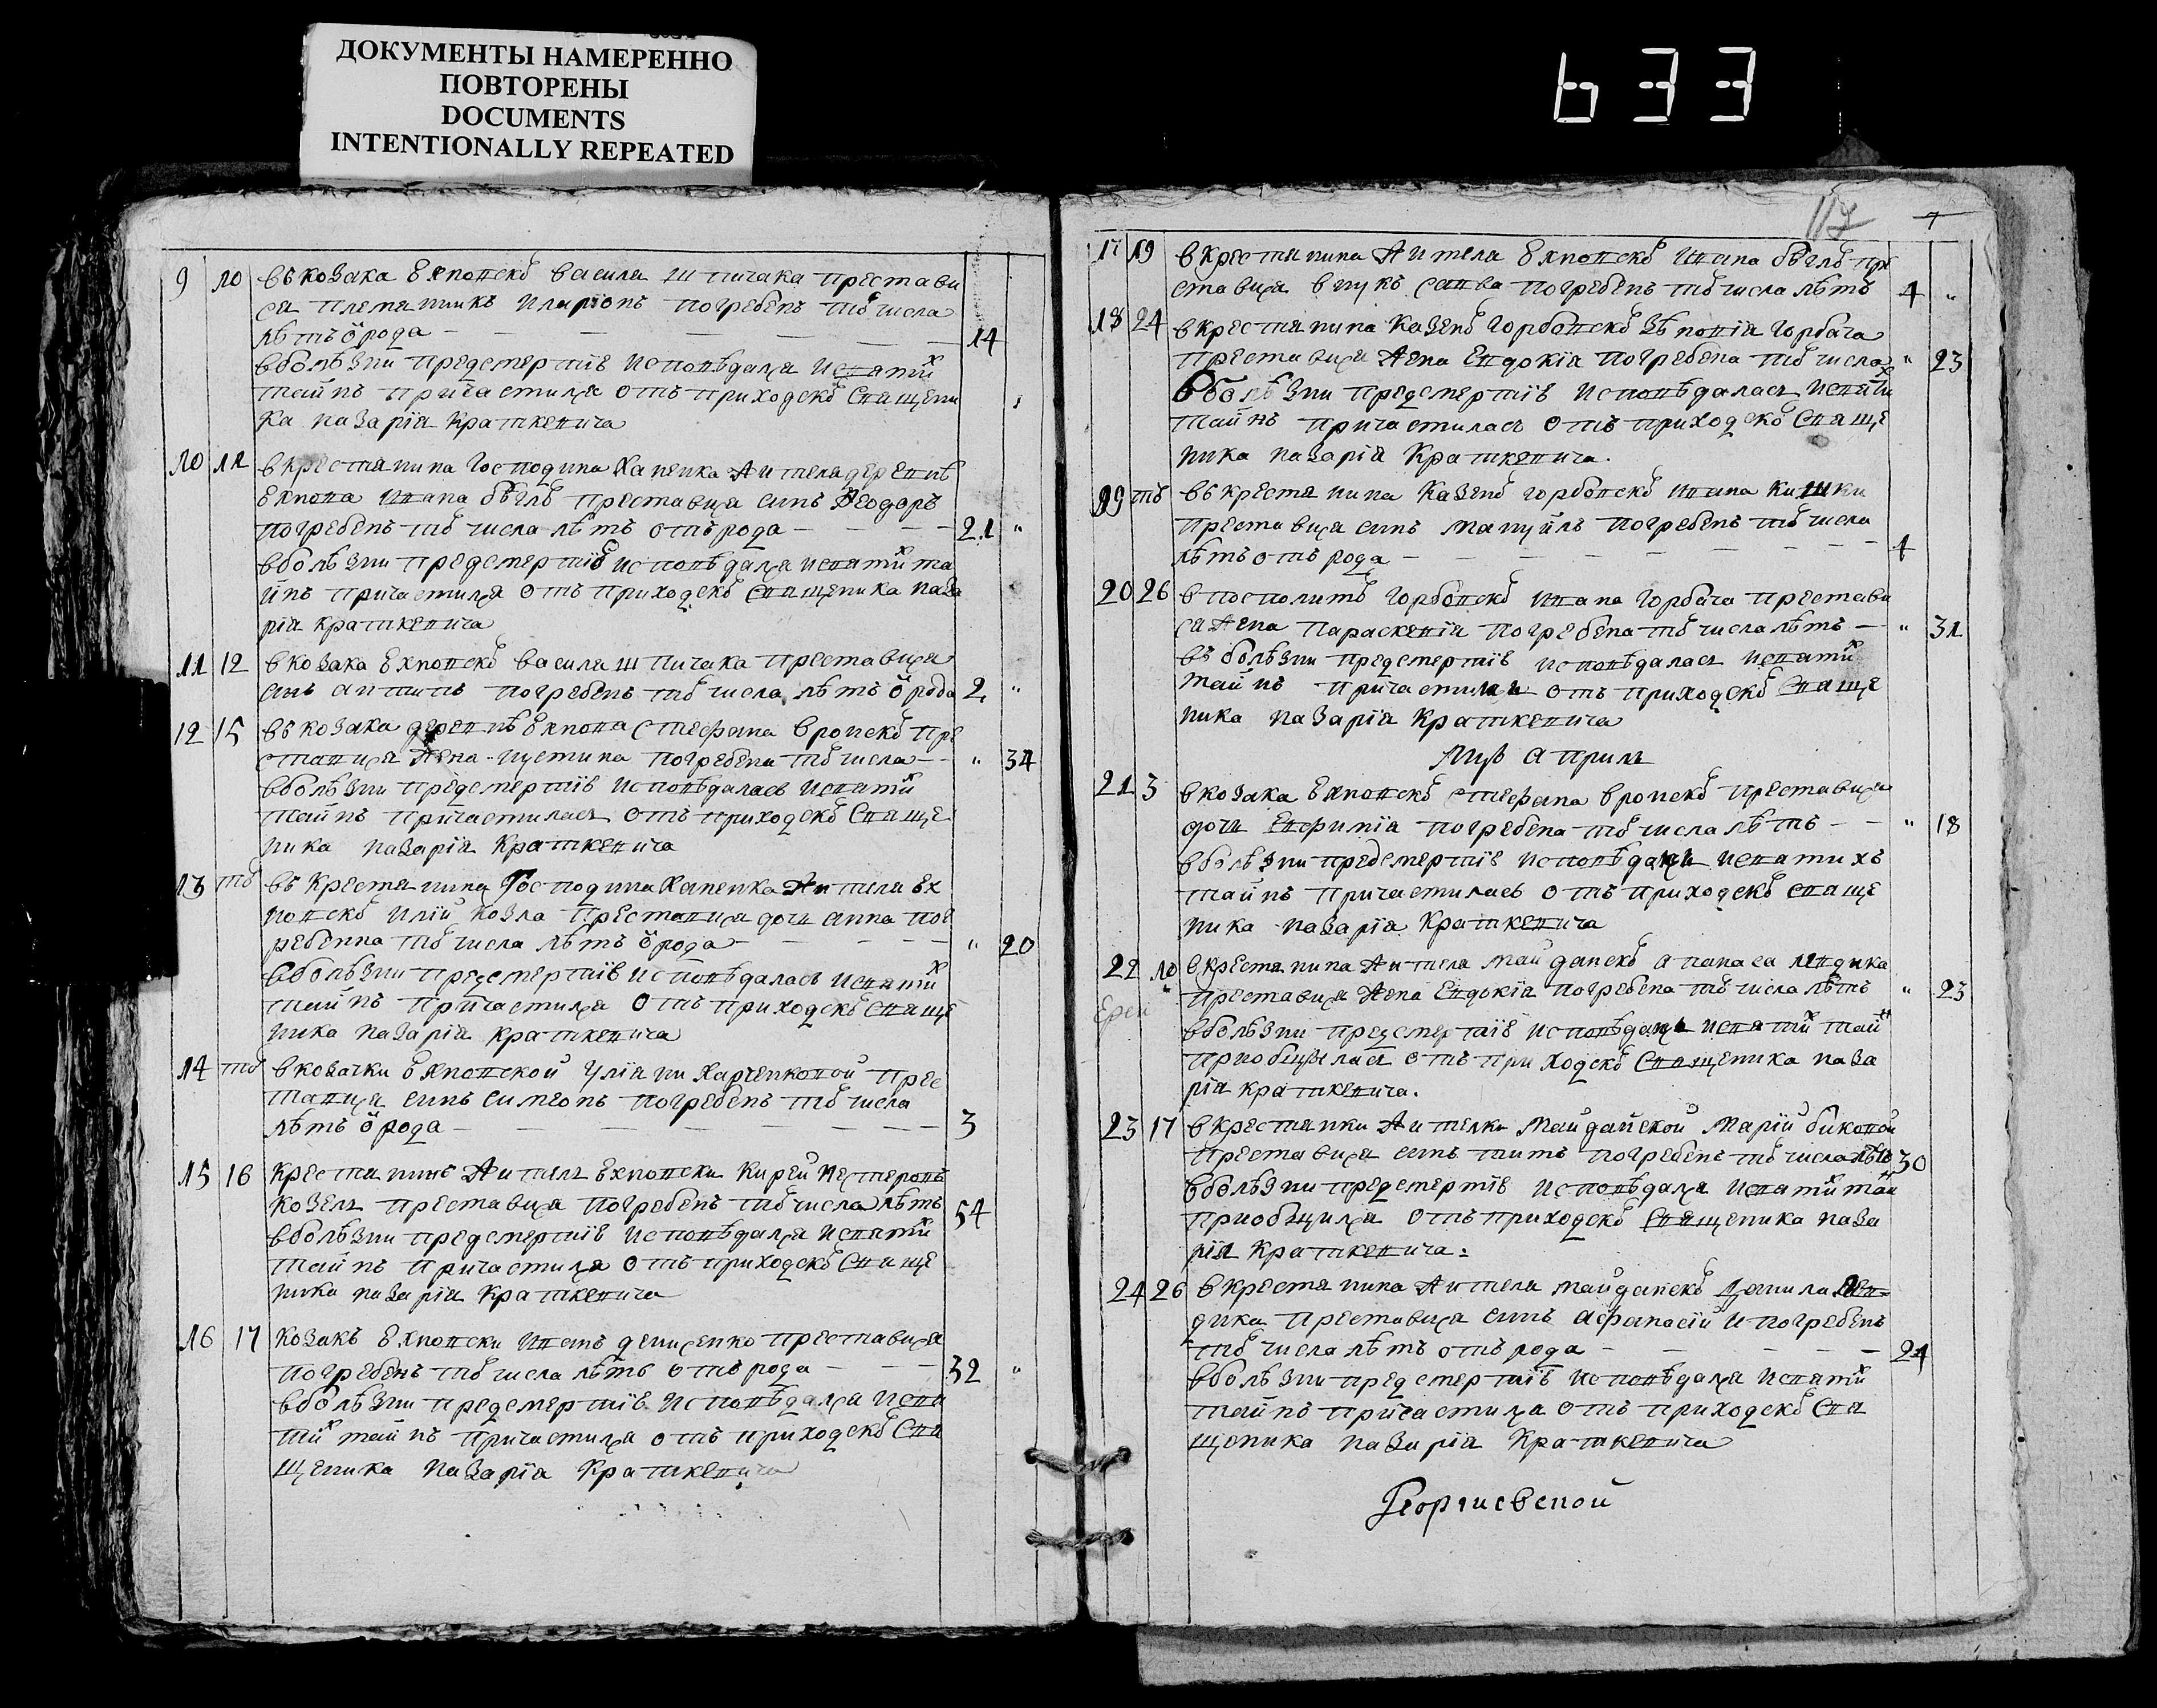 ДОКУМЕНТЫ НАМЕРЕННО
ПОВТОРЕНЫ
DOCUMENTS
INTENTIONALLY REPEATED
633
117
9 10 въ козака Вяповскѡ василя шпичака престави
ся племянникъ иларіонъ погребенъ тѡ числа
лѣтъ ѿ рода 14
вболѣзни предсмертнѣ исповѣдался исвяти х
тайнъ причастился отъ приходскѡ священи
ка назарія Краткевича
10 11 вкрестянина Господина Ханенка жителя деревнѣ
ивана бѣглѡ преставися синъ Ѳеодоръ
погребенъ тѡ числа лѣтъ отъ рода 21 „
вболѣзни предсмертнѣ исповѣдался исвяти х та
инъ причастился отъ приходскѡ священика наза
рія краткевича
11 12 вкозака василя шпичака преставися
синъ антипъ погребенъ тѡ числа лѣтъ ѿ рода 2 „
12 15 въ козака деревнѣ стефана вронскѡ пре
ставися жена иустина погребена тѡ числа „ 34
вболѣзни предсмертнѣ исповѣдалась исвяти х
тайнъ причастилась отъ приходскѡ свяще
ника назарія Краткевича
13 тѡ въ крестянина Господина Ханенка жителя
иліи козла преставися дочь анна пог
ребенна тѡ числа лѣтъ ѿ рода „ 20
вболѣзни предсмертнѣ исповѣдалась исвяти х
тайнъ причастился отъ приходскѡ свяще
ника назарія краткевича
14 тѡ вкозачки уліяни Харченковой прес
тавися синъ симеонъ погребенъ тѡ числа
лѣтъ ѿ рода 3
15 16 крестянинъ житель кирей нестеровъ
козелъ преставися погребенъ тѡ числа лѣтъ 54
вболѣзни предсмертнѣ исповѣдался исвяти х
тайнъ причастился отъ приходскѡ свяще
ника назарія Краткевича
16 17 козакъ иванъ денисенко преставися
погребенъ тѡ числа лѣтъ отъ рода 32 „
вболѣзни предсмертнѣ исповѣдался исвя
ти х тайнъ причастился отъ приходскѡ свя
щеника назарія Краткевича
17 19 вкрестянина жителя ивана бѣглѡ пре
ставися внукъ савва погребенъ тѡ числа лѣтъ 4 „
18 24 вкрестянина казенѡ горбовскѡ зѣновія горбача
преставися жена Евдокія погребена тѡ числа „ 23
вболѣзни предсмертнѣ исповѣдалась исвяти х
тайнъ причастилась отъ приходскѡ свяще
ника назарія Краткевича.
19 тѡ въ крестянина казенѡ горбовскѡ ивана кишки
преставися синъ мануйлъ погребенъ тѡ числа
лѣтъ отъ рода 1
20 26 впосполитѡ горбовскѡ ивана горбача престави
ся жена параскевія погребена тѡ числа лѣтъ „ 31
въ болѣзни предсмертнѣ исповѣдалась исвяти х
тайнъ причастилась отъ приходскѡ свяще
ника назарія краткевича
Мцъ априль
21 3 вкозака стефана вронскѡ преставися
дочь Евфимія погребена тѡ числа лѣтъ „ 18
вболѣзни предсмертнѣ исповѣдась исвятихъ
тайнъ причастилась отъ приходскѡ свяще
ника назарія краткевича
22 10 вкрестянина жителя майданскѡ апанаса левдика
преставися жена Евдокія погребена тѡ числа лѣтъ „ 23
вболѣзни предсмертнѣ исповѣдась исвяти х тай н
приобщилася отъ приходскѡ священика наза
рія краткевича.
23 17 вкрестянки жителки майданской маріи биковой
преставися синъ титъ погребенъ тѡ числа лѣтъ 30
вболѣзни предсмертнѣ исповѣдался исвяти х тай н
приобщился отъ приходскѡ священика наза
рія Краткевича:
24 26 вкрестянина жителя майданскѡ данила лев=
дика преставися синъ афанасій и погребенъ
тѡ числа лѣтъ отъ рода 24
вболѣзни предсмертнѣ исповѣдался исвяти х
тайнъ причастился отъ приходскѡ свя
щеника назарія Краткевича
Георгиевской